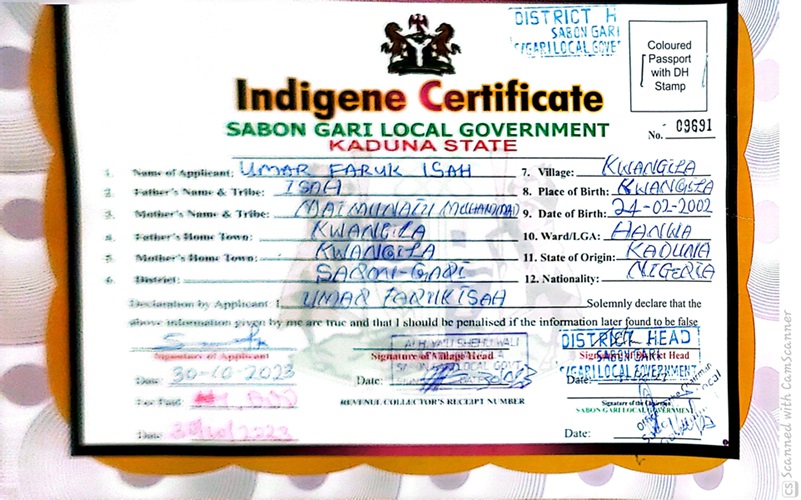 DISTRICT H
SABON GARI
GARI LOCAL GOVE
Coloured
Passport
with DH
Stamp
Indigene Certificate
SABON GARI LOCAL GOVERNMENT
KADUNA STATE
No. 09691
1. Name of Applicant: UMAR FARUK ISAH 7. Village: KWANGILA
2. Father's Name & Tribe: ISAH 8. Place of Birth: KWANGILA
3. Mother's Name & Tribe: MAIMUNATU MUHAMMAD 9. Date of Birth: 24-02-2002
4. Father's Home Town: KWANGILA 10. Ward/LGA: HANWA
5. Mother's Home Town: KWANGILA 11. State of Origin: KADUNA
6. District: SABON-GARI 12. Nationality: NIGERIA
Declaration by Applicant I UMAR FARUK ISAH Solemnly declare that the
above information given by me are true and that I should be penalised if the information later found to be false
DISTRICT HEAD
SABON GARI
GARI LOCAL GOVERNMENT
ALH. YA'U SHEHU WALI
Signature of Applicant Signature of Village Head Signature of District Head
Date 30-10-2023 Date: Date:
Fee Paid
REVENUE COLLECTOR'S RECEIPT NUMBER
Signature of the Chairman
SABON GARI LOCAL GOVERNMENT
Date: 30/10/2023 Date:
CS Scanned with CamScanner